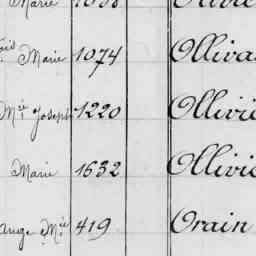 Marie 1058 Ollivi
ois Marie 1074 Olliva
Mie Joseph 1220 Ollivi
Marie 1632 Ollivi
ange Mie 419 Orain